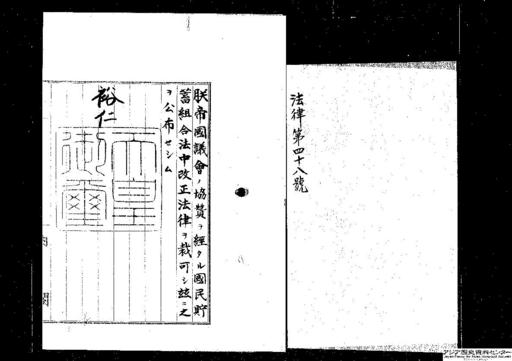 法律第四十八號
朕帝國議會ノ協贊ヲ經タル國民貯
蓄組合法中改正法律ヲ裁可シ玆ニ之
ヲ公布セシム
裕仁
天皇
御璽
内閣
アジア歴史資料センター